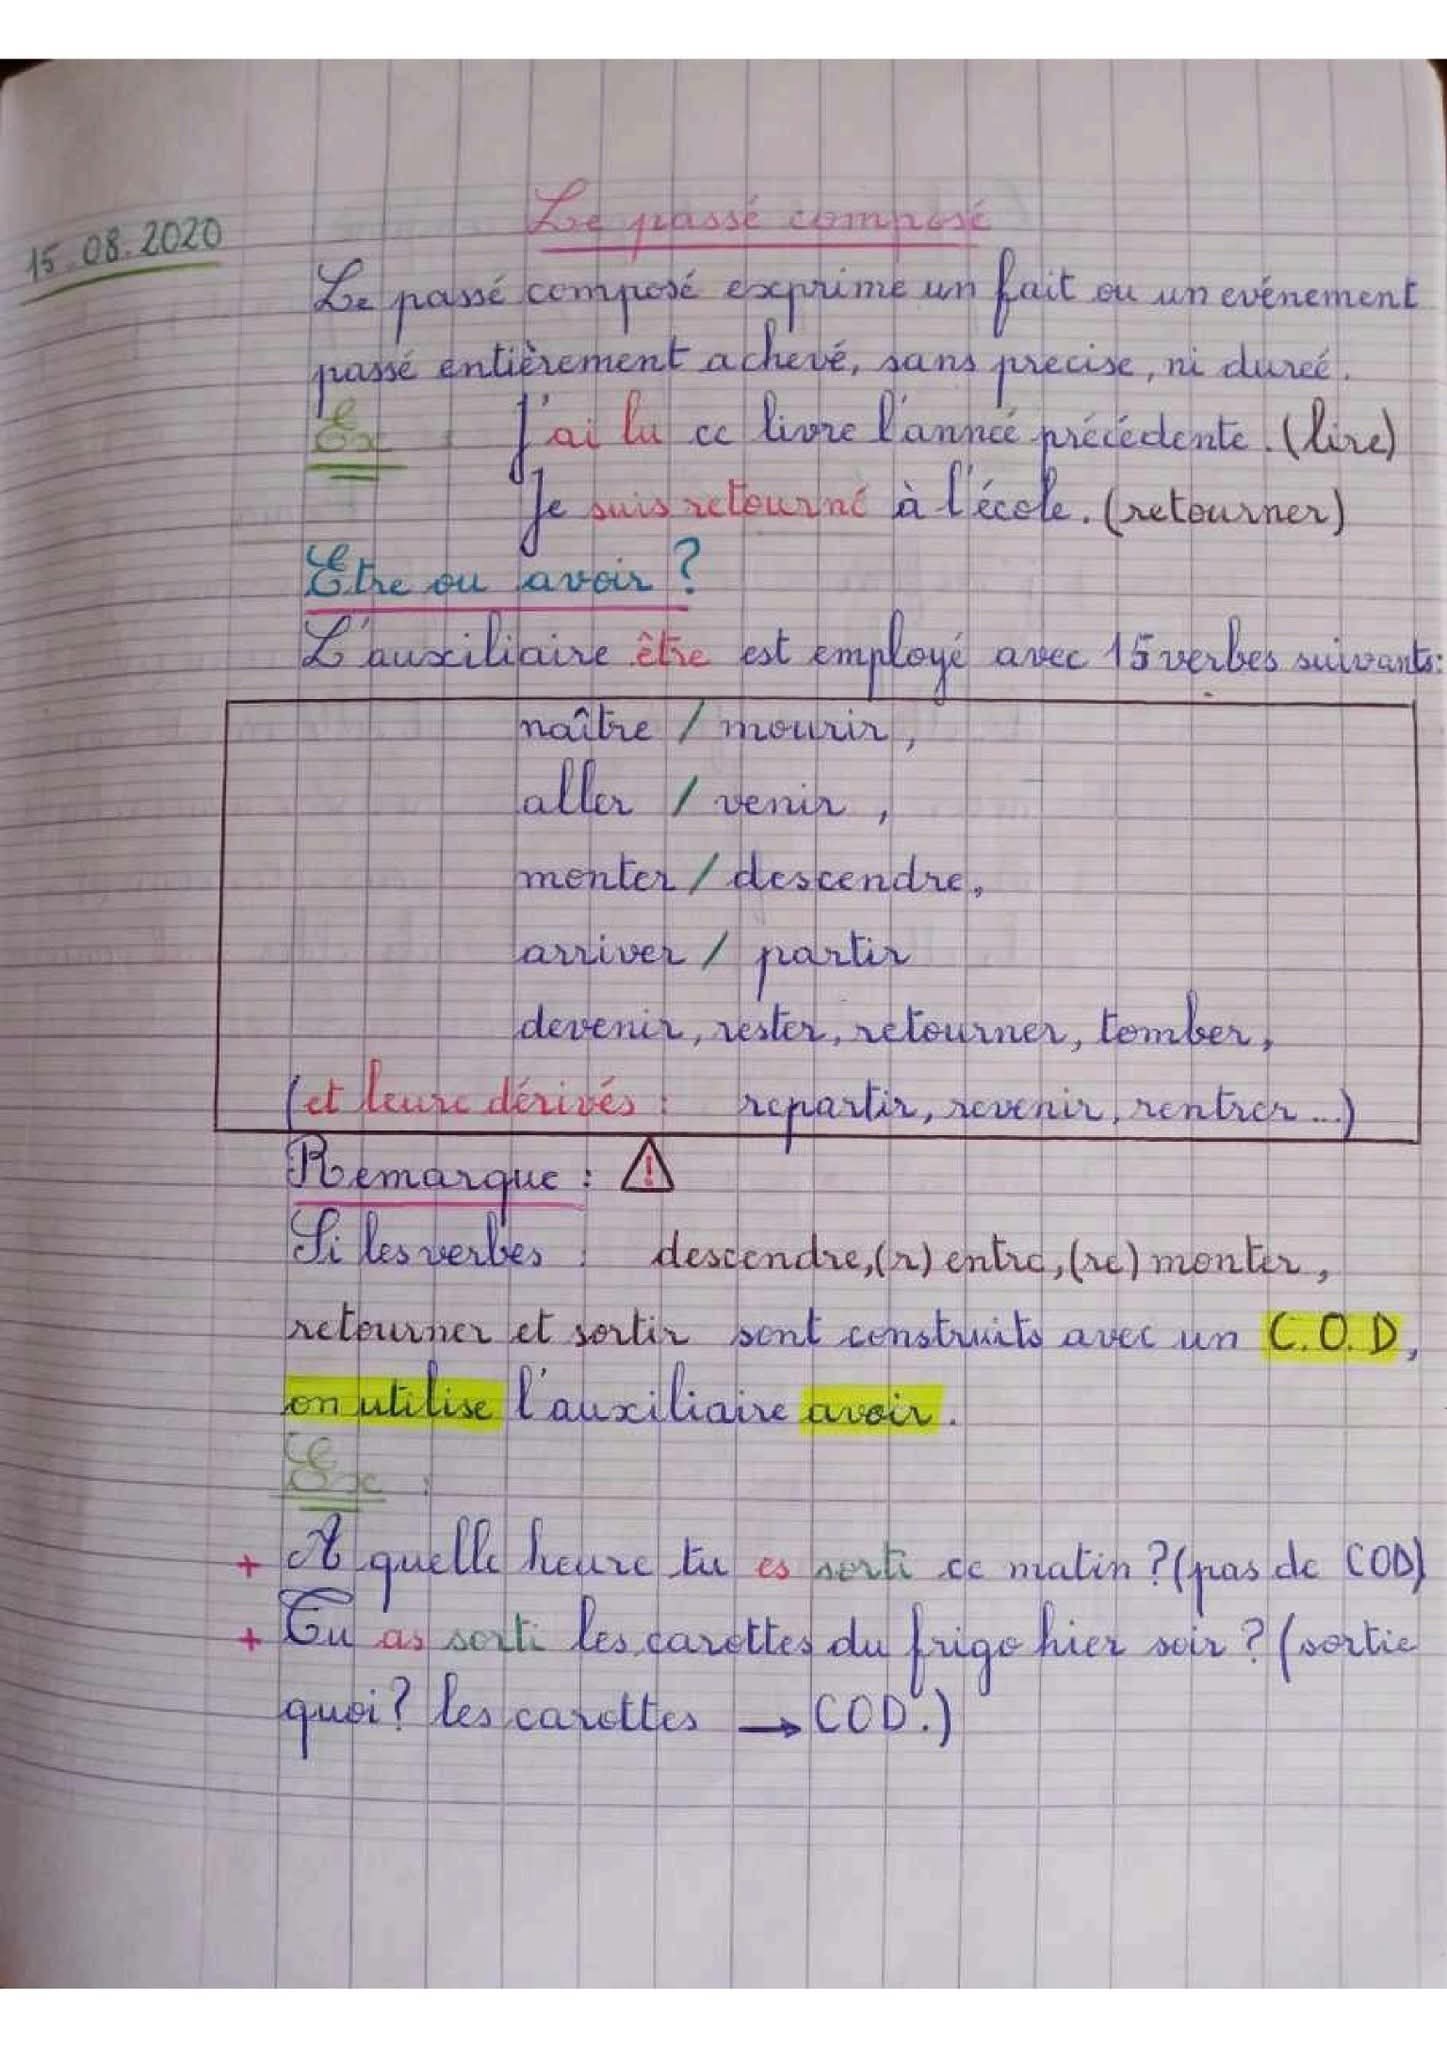 15.08.2020
Le passé composé
Le passé composé exprime un fait ou un evénement
passé entièrement achevé, sans precise, ni dureé.
Ex : J'ai lu ce livre l'anneé précédente. (lire)
Je suis retourné à l'école. (retourner)
Etre ou avoir ?
L'auxiliaire être est employé avec 15 verbes suivants:
naître / mourir,
aller / venir,
monter / descendre,
arriver / partir
devenir, rester, retourner, tomber,
(et leurs dérivés : repartir, revenir, rentrer ...)
Remarque : ⚠
Si les verbes : descendre, (r) entre, (re) monter,
retourner et sortir sont construits avec un C.O.D,
on utilise l'auxiliaire avoir.
Ex :
+ A quelle heure tu es sorti ce matin ? (pas de COD)
+ Tu as sorti les carottes du frigo hier soir ? (sortie
quoi? les carottes → COD.)